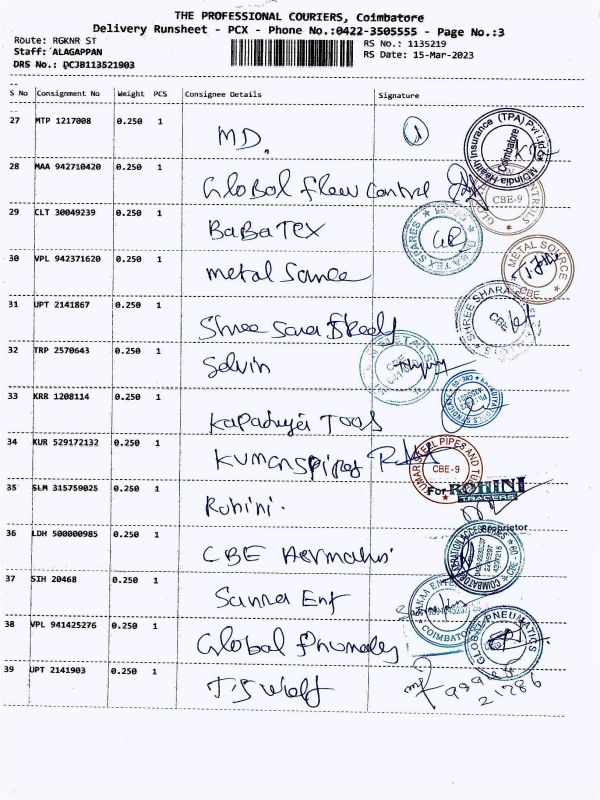 THE PROFESSIONAL COURIERS, Coimbatore
Delivery Runsheet - PCX - Phone No.:0422-3505555 - Page No.:3
Route: RGKNR ST
RS No.: 1135219
Staff: ALAGAPPAN
RS Date: 15-Mar-2023
DRS No.: PCJB113521903
S No Consignment No Weight PCS Consignee Details Signature
27 MTP 1217008 0.250 1 MD.
MDIndia Health Insurance (TPA) Pvt Ltd Coimbatore
28 MAA 942710420 0.250 1 Global flow control
CBE-9
29 CLT 30049239 0.250 1 BaBa TEX
TEX SPARES
30 VPL 942371620 0.250 1 metal Source
METAL SOURCE CBE
31 UPT 2141867 0.250 1 Shree Sara
SHREE SHARA CBE
32 TRP 2570643 0.250 1 Selvin
METALS CBE
33 KRR 1208114 0.250 1
34 KUR 529172132 0.250 1 Kumar
KUMAR STEEL PIPES AND TUBES CBE-9
35 SLM 315759025 0.250 1 Rohini.
For ROHINI
TRADERS
Proprietor
36 LDH 500000985 0.250 1 CBE
COIMBATORE ACCESSORIES
37 SIH 20468 0.250 1 Ent
COIMBATORE
38 VPL 941425276 0.250 1 Global
GLOBAL PNEUMATICS
39 UPT 2141903 0.250 1
999
21786